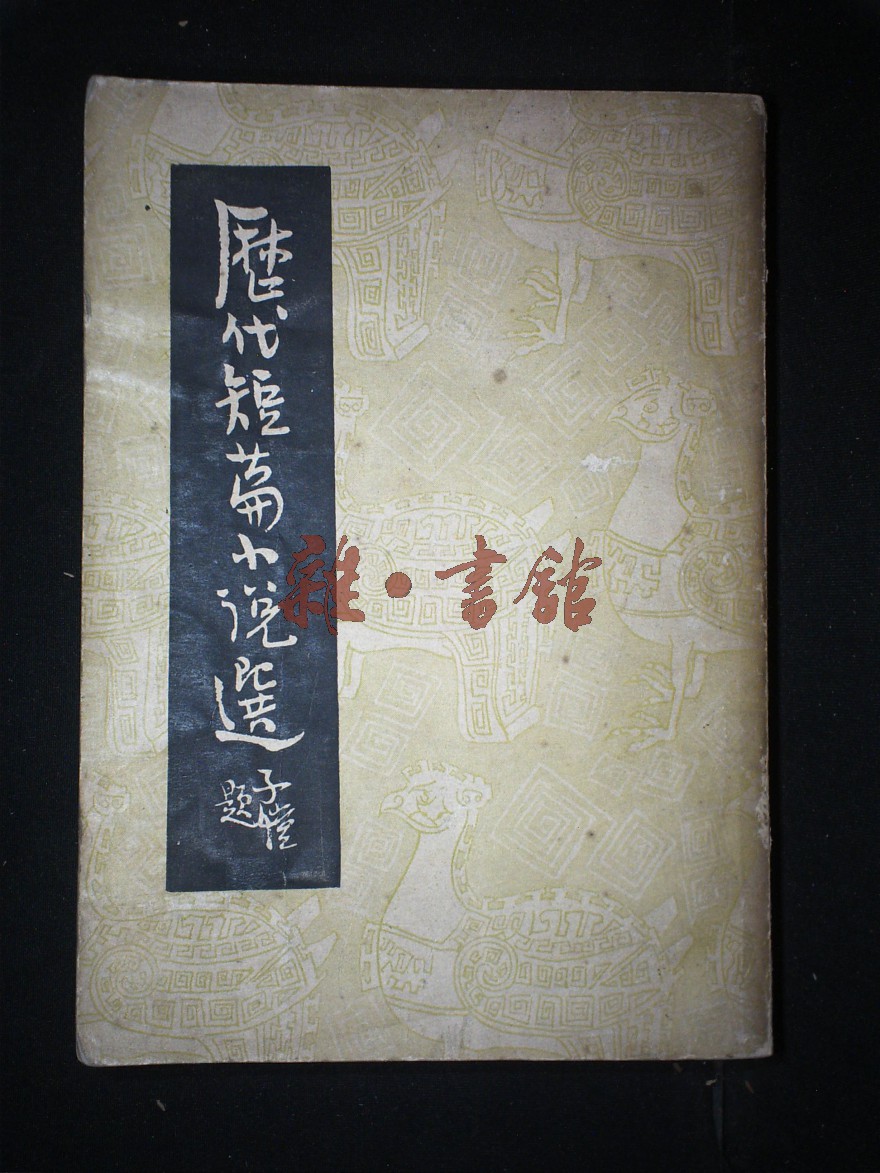 歷代短篇小説選
子愷
題
雜·書舘